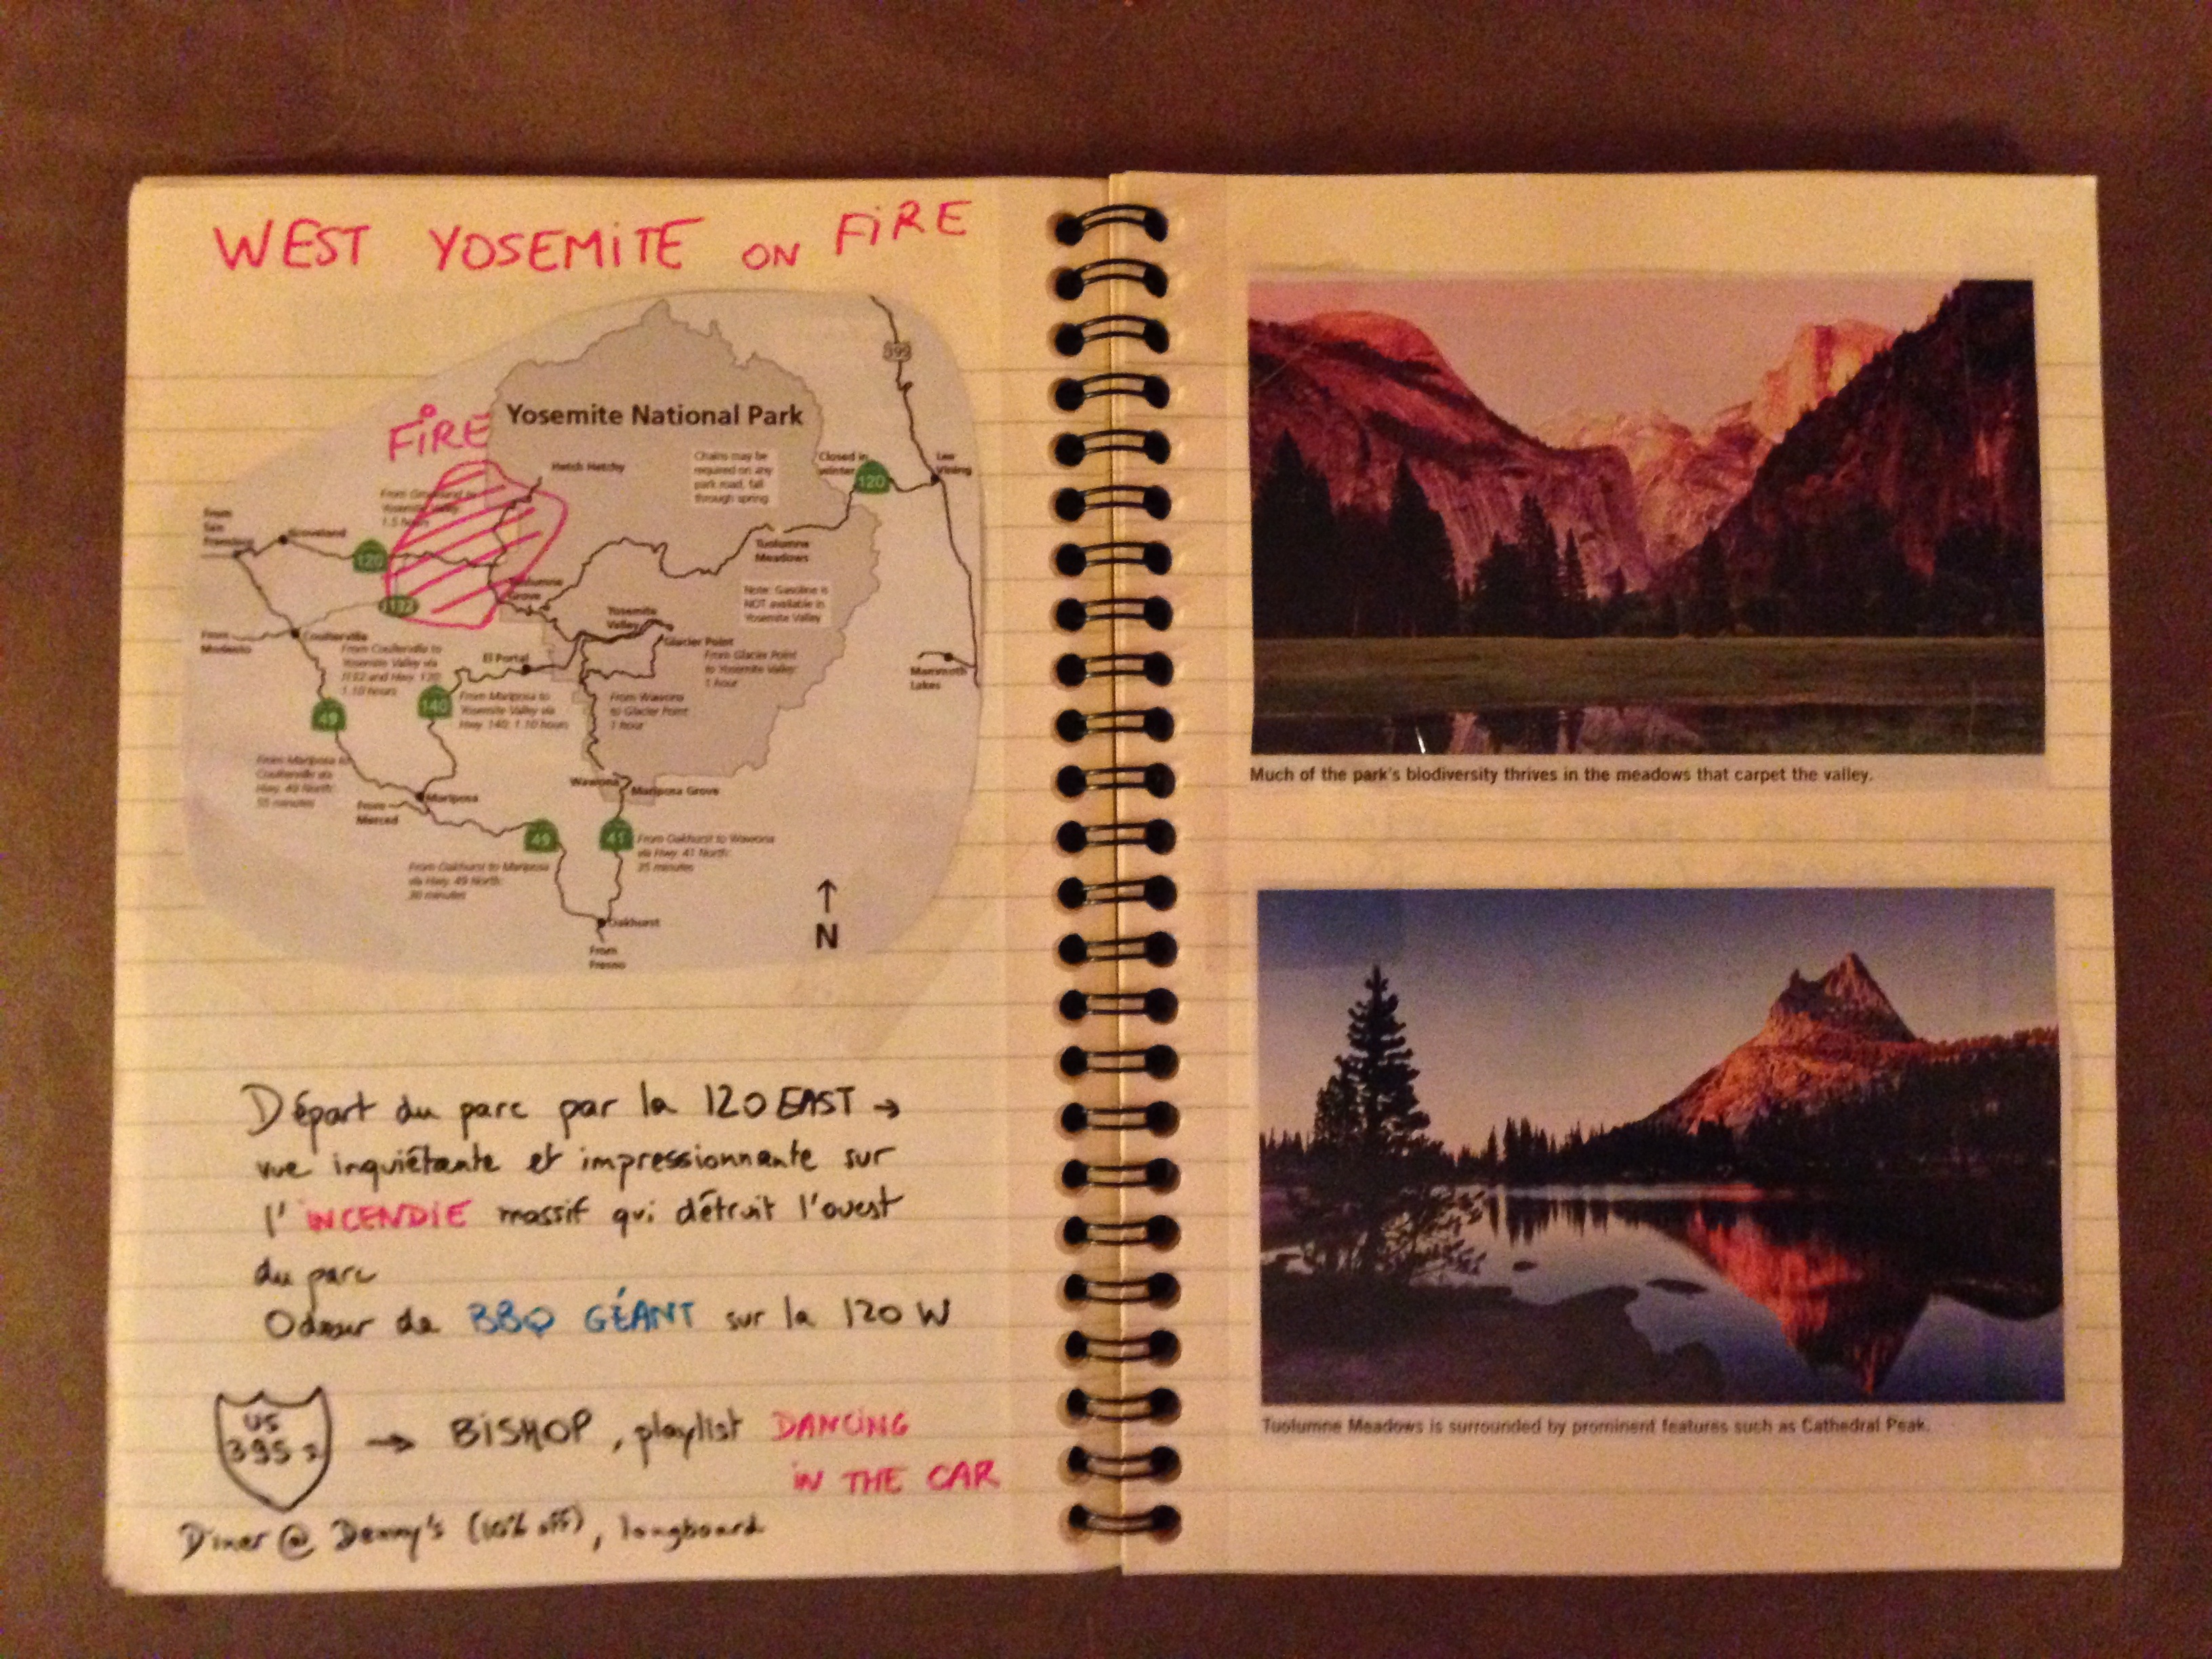 WEST YOSEMITE ON FIRE
399
Yosemite National Park
FIRE
Hetch Hetchy
Chains may be
required on any
park road, fall
through spring.
Closed in
winter
120
Lee
Vining
From Groveland to
Yosemite Valley
1.5 hours
From
San
Francisco
Groveland
120
Tuolumne
Meadows
J132
Tuolumne
Grove
Note: Gasoline is
NOT available in
Yosemite Valley
Yosemite
Valley
Glacier Point
From
Modesto
Coulterville
From Coulterville to
Yosemite Valley via
J132 and Hwy. 120:
1.10 hours
El Portal
From Glacier Point
to Yosemite Valley:
1 hour
Mammoth
Lakes
49
140
From Mariposa to
Yosemite Valley via
Hwy. 140: 1.10 hours
From Wawona
to Glacier Point
1 hour
From Mariposa to
Coulterville via
Hwy. 49 North:
55 minutes
Mariposa
From
Merced
Wawona
Mariposa Grove
49
41
From Oakhurst to Wawona
via Hwy. 41 North:
35 minutes
From Oakhurst to Mariposa
via Hwy. 49 North:
30 minutes
N
Oakhurst
From
Fresno
Départ du parc par la 120 EAST →
vue inquiétante et impressionnante sur
l'INCENDIE massif qui détruit l'ouest
du parc
Odeur de BBQ GÉANT sur la 120 W
US
395 S
→ BISHOP, playlist DANCING
IN THE CAR
Diner @ Denny's (10% off), longboard
Much of the park's biodiversity thrives in the meadows that carpet the valley.
Tuolumne Meadows is surrounded by prominent features such as Cathedral Peak.